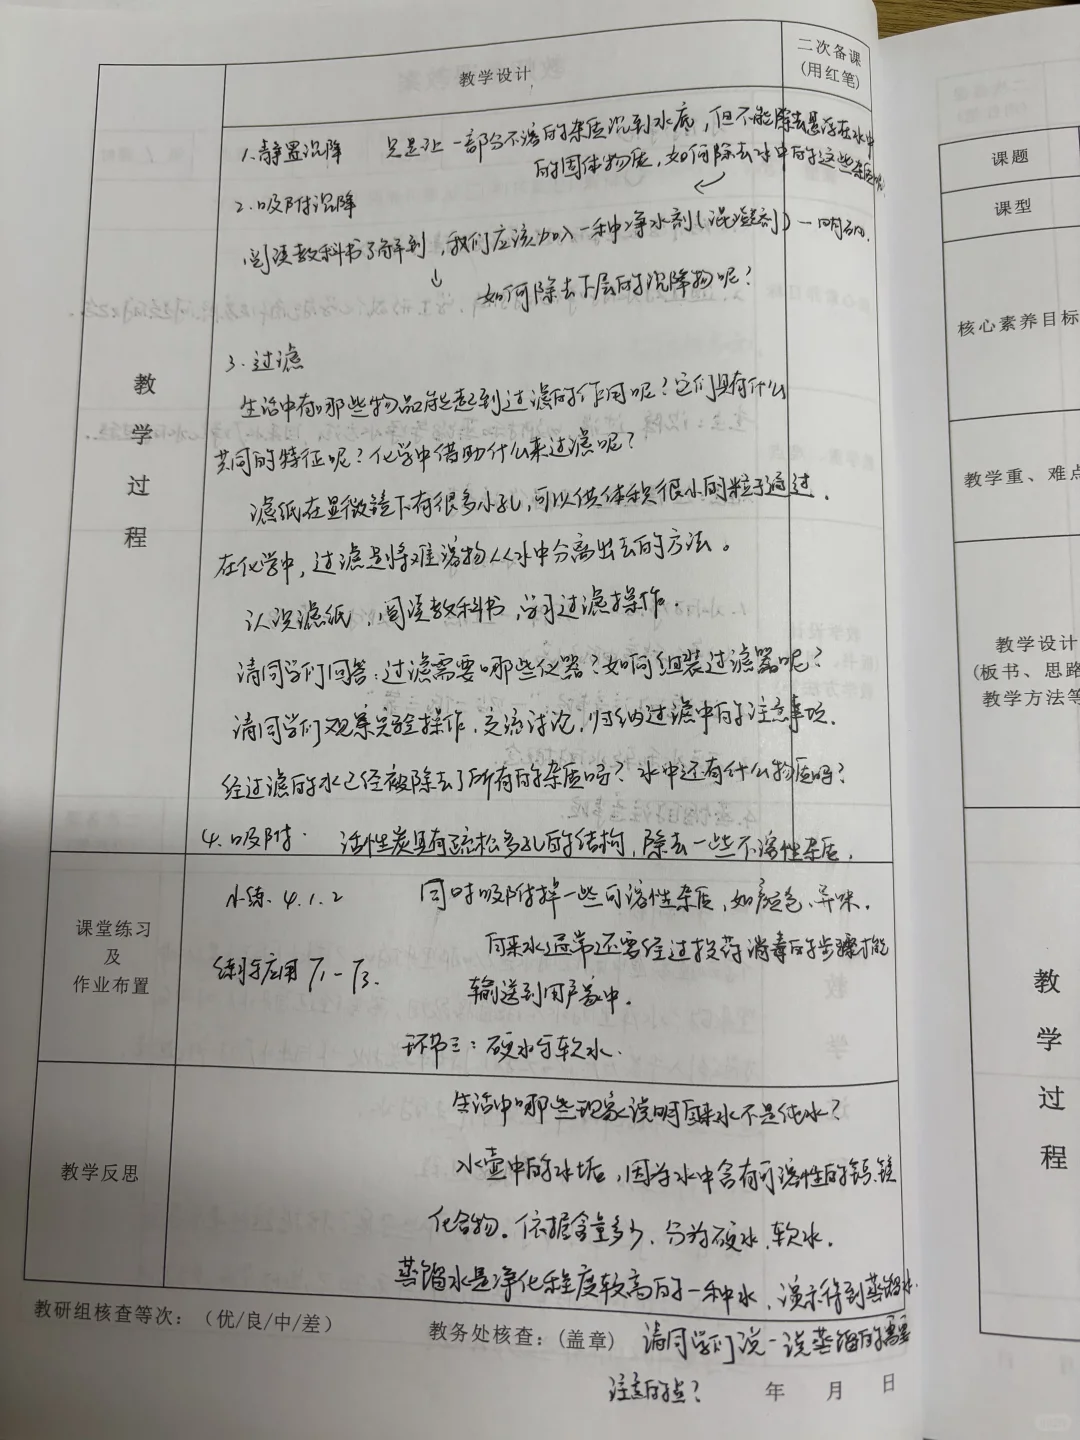 教学设计
二次备课
(用红笔)
1.静置沉降 只是让一部分不溶的杂质沉到水底，但不能除去悬浮在水中
的固体物质，如何除去水中的这些杂质呢
2.吸附沉降
阅读教科书了解到，我们应该加入一种净水剂(混凝剂)—明矾.
如何除去下层的沉降物呢？
3.过滤
生活中有哪些物品能起到过滤的作用呢？它们具有什么
共同的特征呢？化学中借助什么来过滤呢？
滤纸在显微镜下有很多小孔，可以供体积很小的粒子通过.
在化学中，过滤是将难溶物从水中分离出去的方法。
认识滤纸，阅读教科书，学习过滤操作.
请同学们回答：过滤需要哪些仪器？如何组装过滤器呢？
请同学们观察实验操作，交流讨论，归纳过滤中的注意事项.
经过滤的水已经被除去了所有的杂质吗？水中还有什么物质吗？
4.吸附. 活性炭具有疏松多孔的结构，除去一些不溶性杂质，
教
学
过
程
课堂练习
及
作业布置
小练 4.1.2 同时吸附掉一些可溶性杂质，如颜色、异味.
自来水通常还要经过投药消毒的步骤才能
练习与应用 T1-T3. 输送到用户家中.
环节三：硬水与软水.
教学反思
生活中哪些现象说明自来水不是纯水？
水壶中的水垢，因为水中含有可溶性的钙、镁
化合物。依据含量多少，分为硬水、软水.
蒸馏水是净化程度较高的一种水，演示得到蒸馏水.
教研组核查等次：（优/良/中/差）
教务处核查：(盖章) 请同学们说一说蒸馏的需要
注意的点？ 年 月 日
课题
课型
核心素养目标
教学重、难点
教学设计
(板书、思路
教学方法等
教
学
过
程